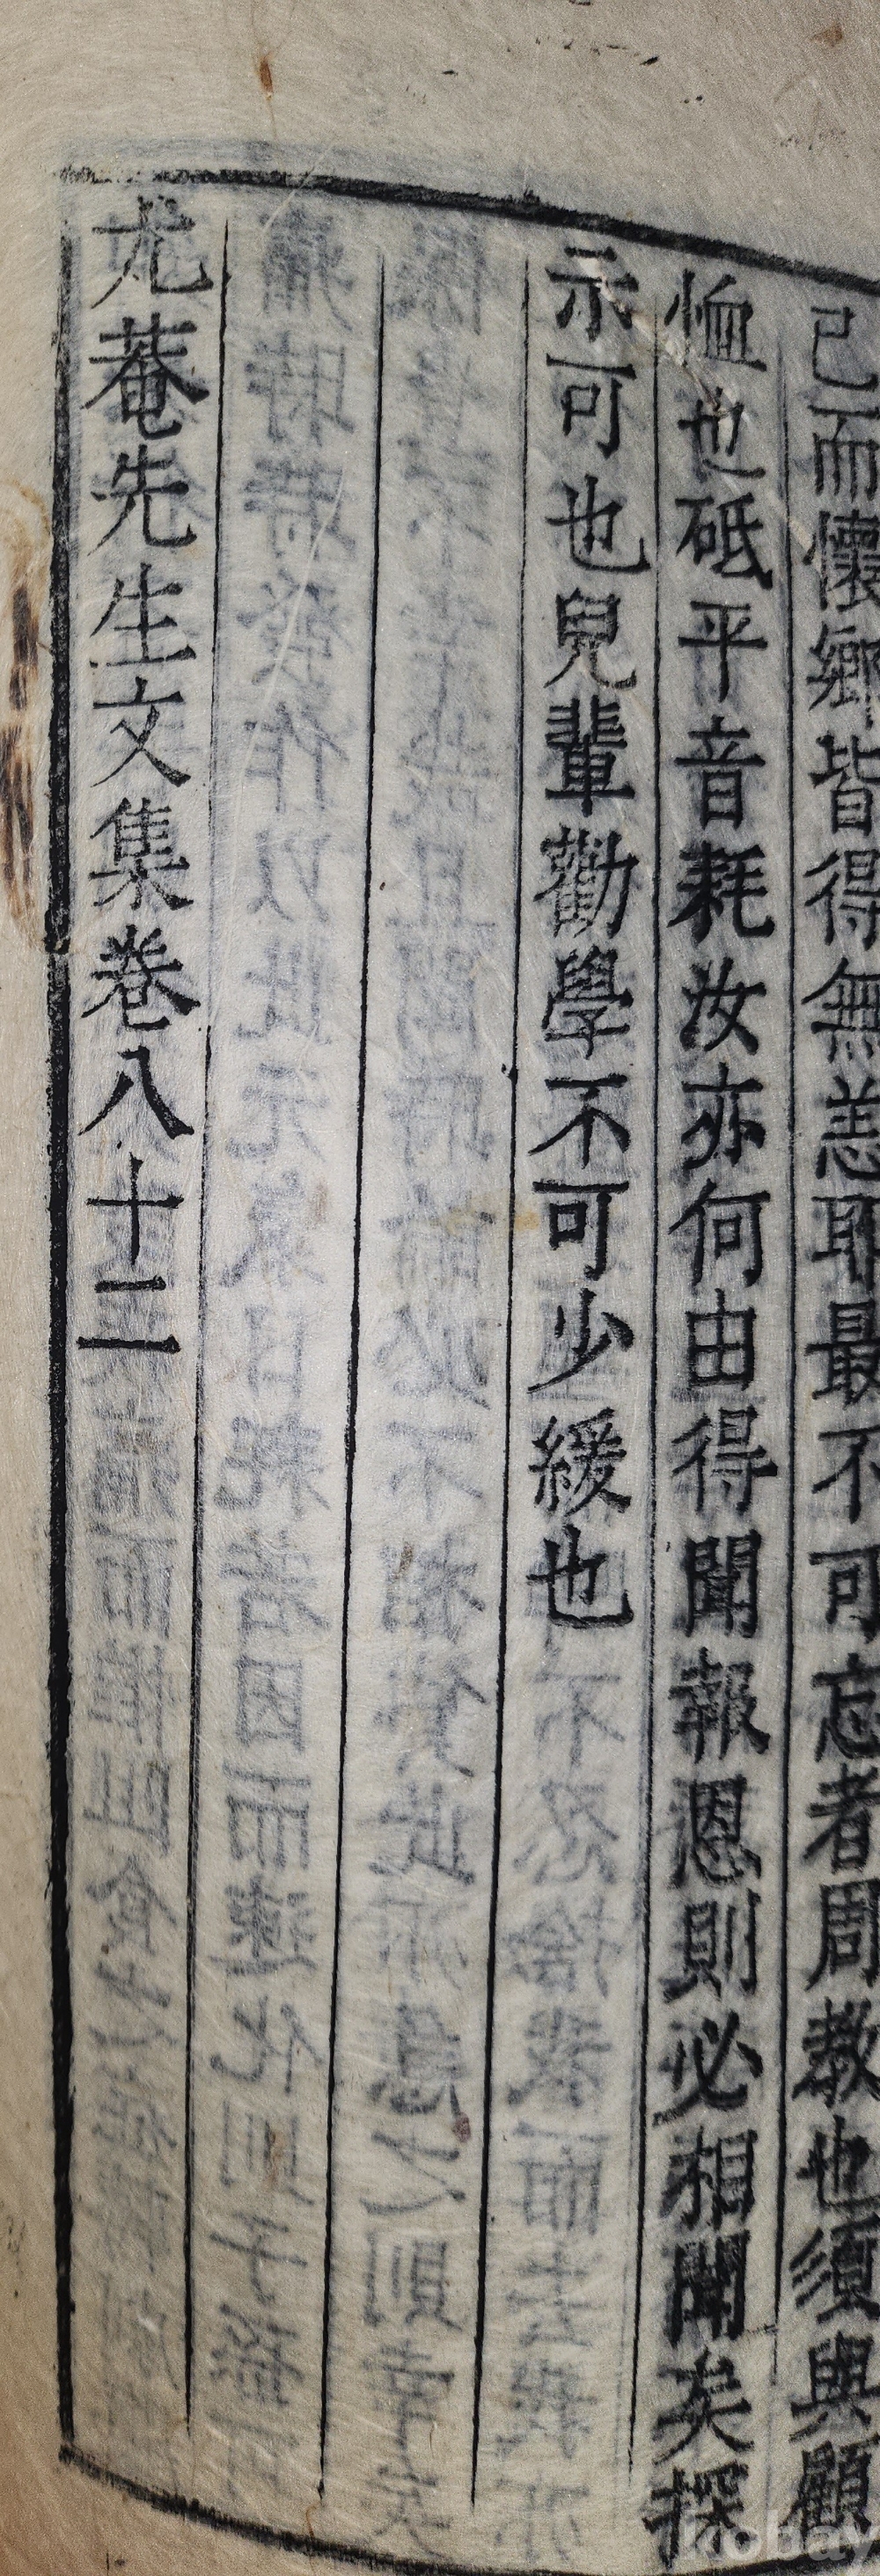 己而懷鄉皆得無恙耶最不可忘者周教也須與顧
恤也砥平音耗汝亦何由得聞報恩則必相聞矣探
示可也兒輩勸學不可少緩也
尤菴先生文集卷八十二
kobay